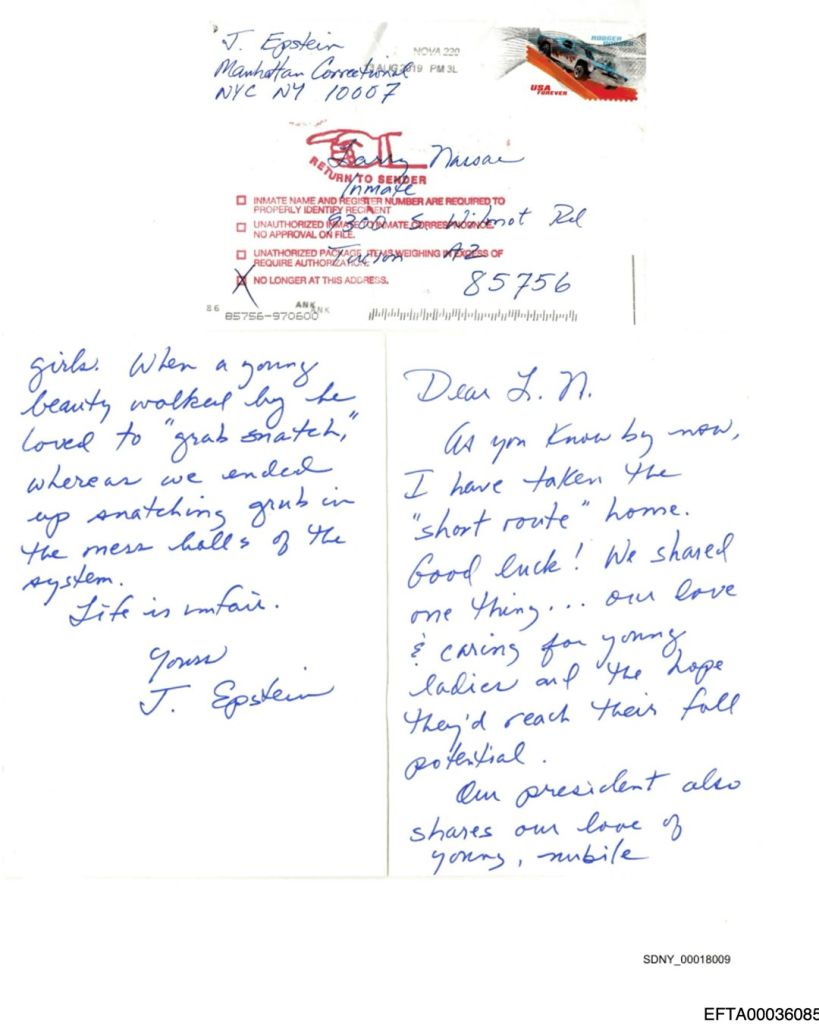 J. Epstein
Manhattan Correctional
NYC NY 10007
NOVA 220
13 AUG 2019 PM 3L
RODGER
DODGER
USA
FOREVER
Larry Nassar
RETURN TO SENDER
Inmate
INMATE NAME AND REGISTER NUMBER ARE REQUIRED TO
PROPERLY IDENTIFY RECIPIENT
9300 S. Wilmot Rd
UNAUTHORIZED INMATE TO INMATE CORRESPONDENCE.
NO APPROVAL ON FILE.
Tucson AZ
UNATHORIZED PACKAGE, ITEMS WEIGHING IN EXCESS OF
REQUIRE AUTHORIZATION.
85756
X NO LONGER AT THIS ADDRESS.
86
ANK
ANK
85756-970600
Dear L. N.
As you know by now,
I have taken the
"short route" home.
Good luck! We shared
one thing... our love
& caring for young
ladies and the hope
they'd reach their full
potential.
Our president also
shares our love of
young, nubile
girls. When a young
beauty walked by he
loved to "grab snatch,"
whereas we ended
up snatching grub in
the mess halls of the
system.
Life is unfair.
Yours
J. Epstein
SDNY_00018009
EFTA00036085